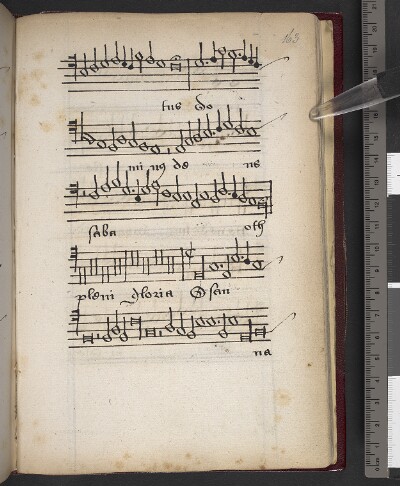 163
tus do
mi nꝰ de us
saba oth
pleni gloria Osan
na